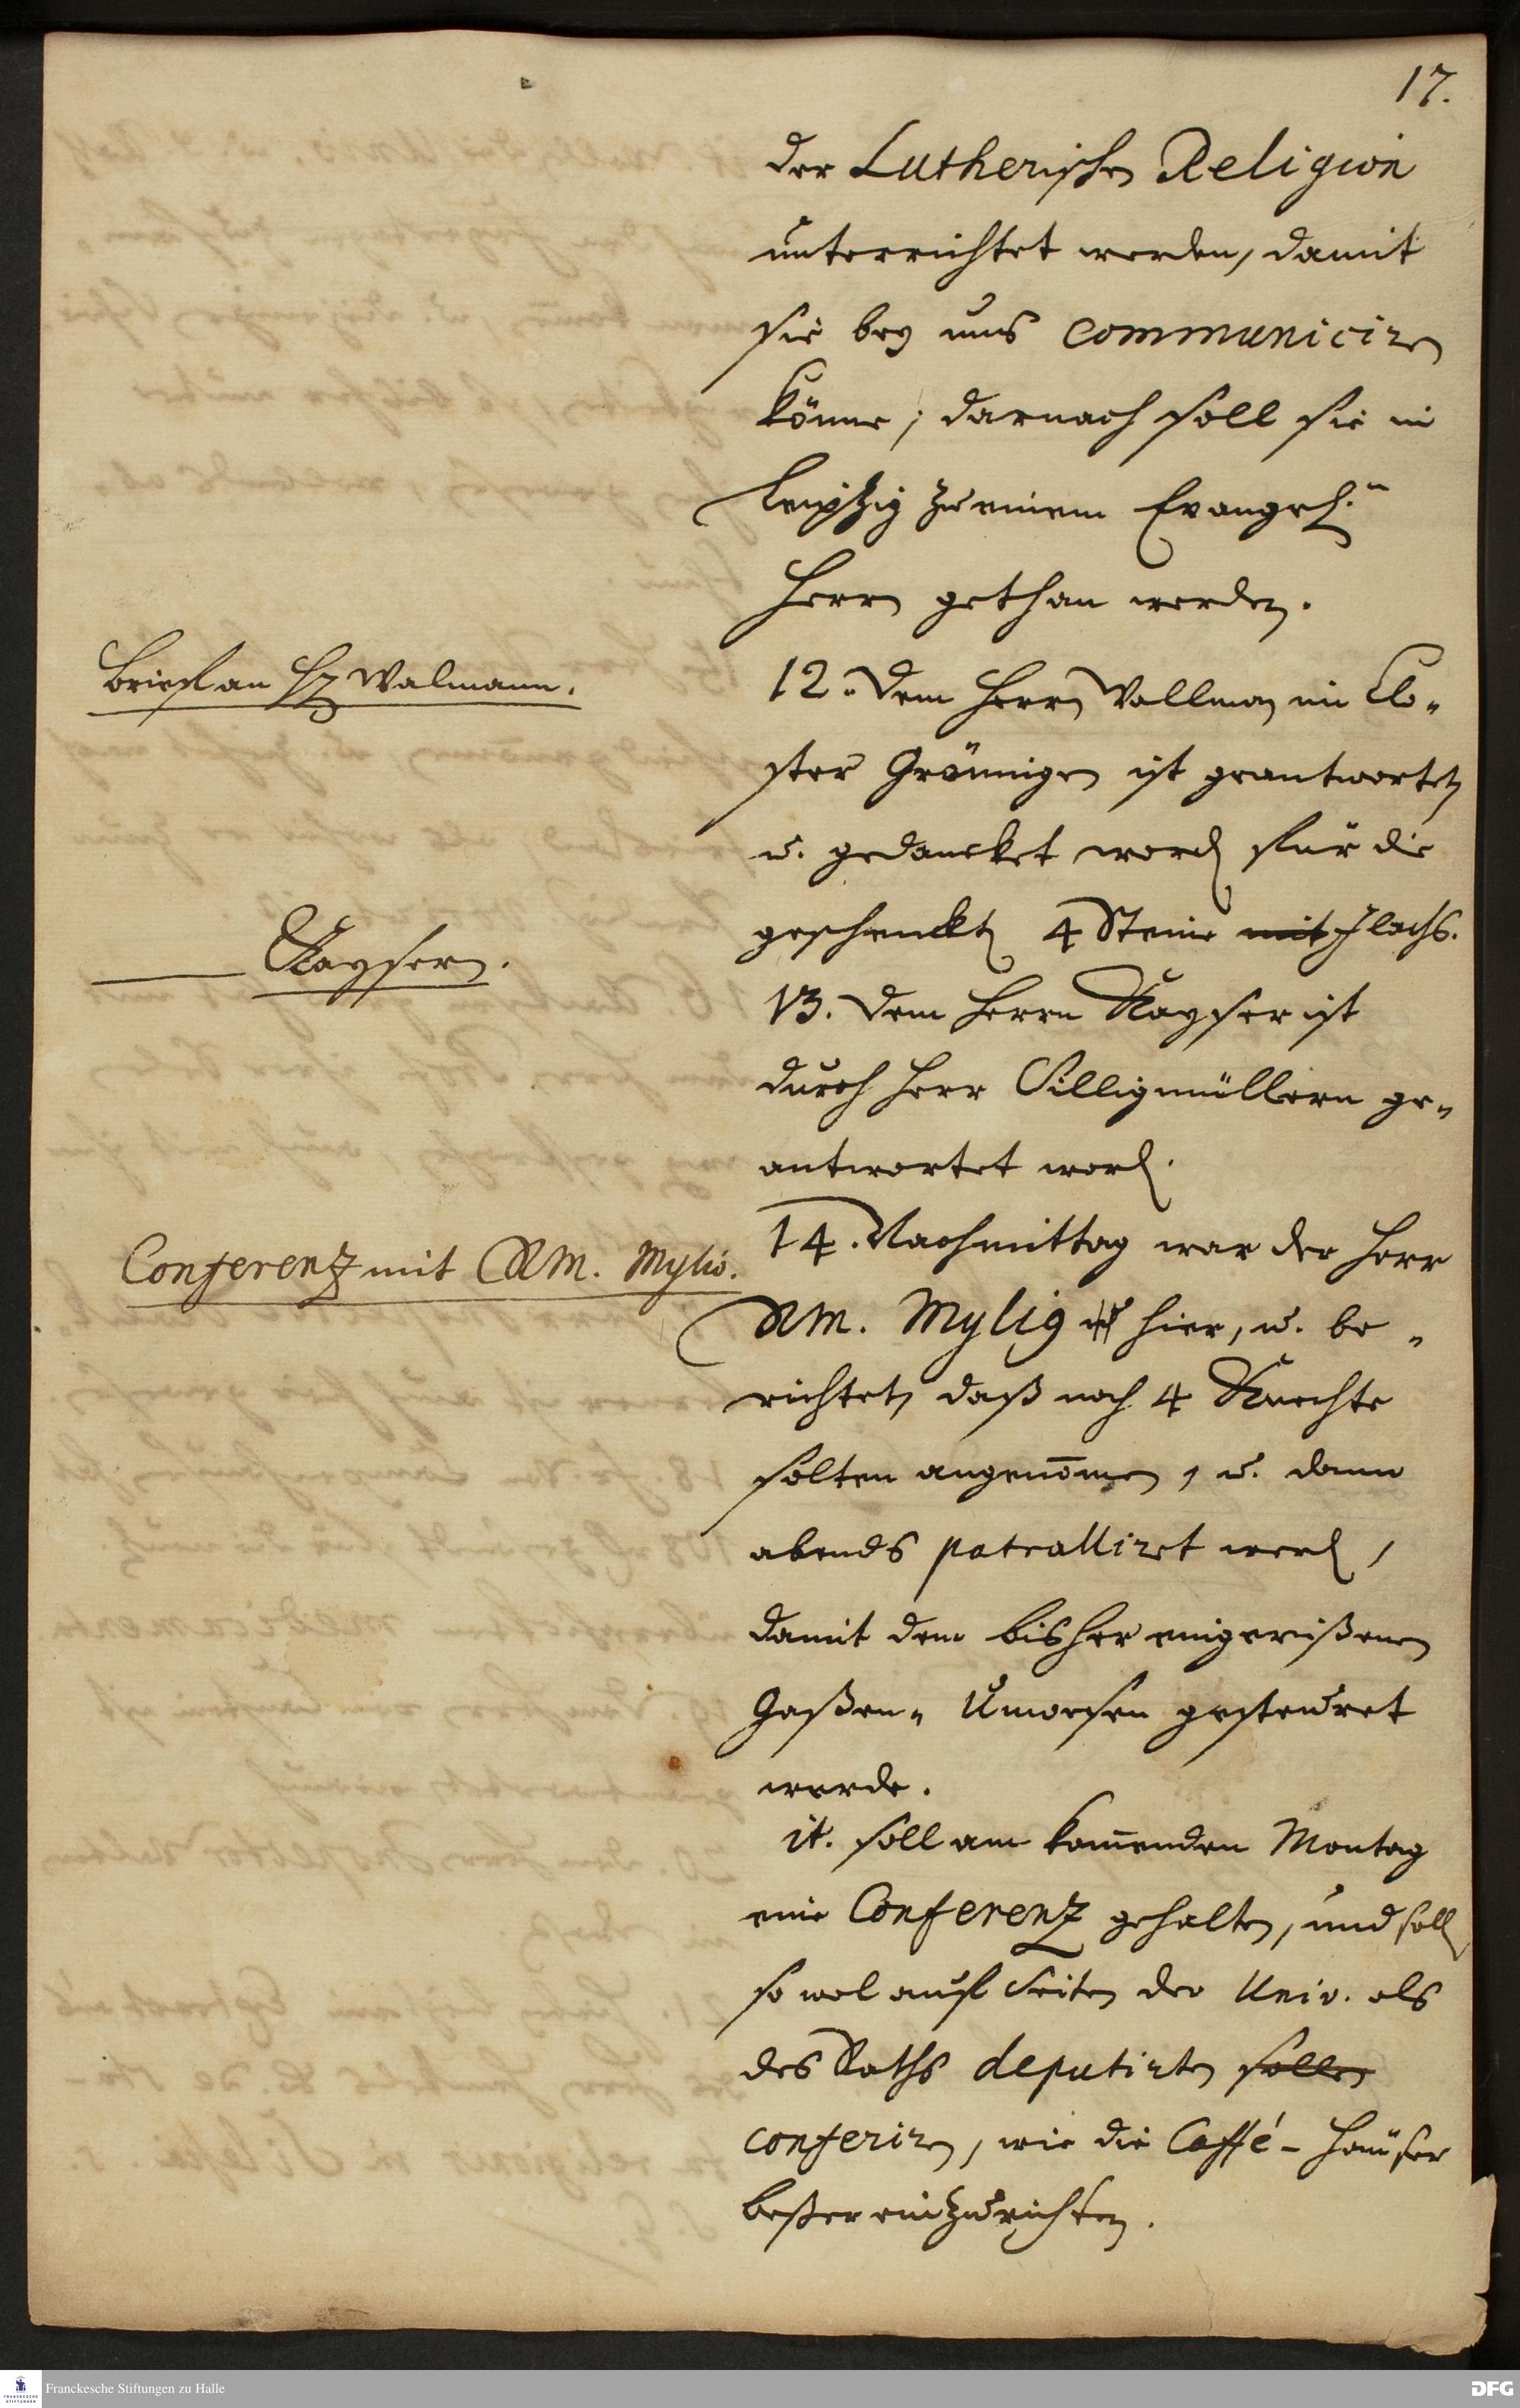 17.
der Lutherischen Religion
unterrichtet werden, damit
sie bey uns communiciren
könne; darnach soll sie in
Leipzig zu einem Evangel.n
Herrn gethan werden.
Brief an H. Walmann.
12. Dem Herrn Wallman im Clo-
ster Grönnigen ist geantwortet
u. gedancket word für die
geschenckte 4 Steine mit Flachs.
Kaysern.
13. Dem Herrn Kayser ist
durch Herr Silligmüllern ge-
antwortet word.
Conferentz mit RM. Mylio.
14. Nachmittag war der Herr
RM. Mylius hier, u. be-
richtet, daß noch 4 Knechte
solten angenom̅en, u. dann
abends patralliret werd,
damit dem bisher eingerißenen
Gaßen-Unwesen gesteuret
werde.
it. soll am kom̅enden Montag
eine Conferentz gehalten, und soll
so wol auf Seiten der Univ. als
des Raths deputirten sollen
conferiren, wie die Caffé-Häuser
beßer einzurichten.
Franckesche Stiftungen zu Halle
FRANCKESCHE STIFTUNGEN
DFG